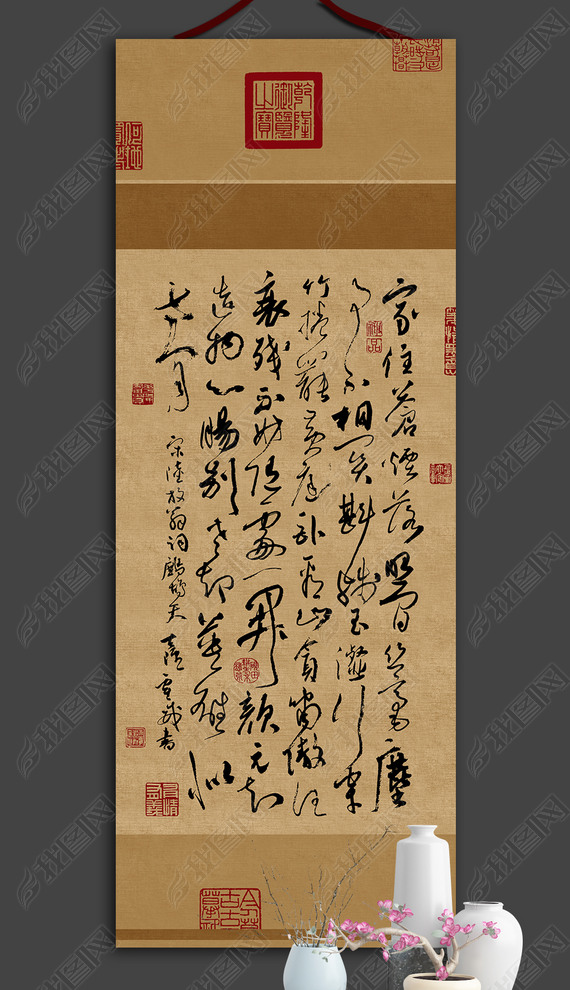 乾隆御覽之寶
家住蒼煙落照間絲毫塵
事不相關斟殘玉瀣行穿
竹捲罷黃庭臥看山貪嘯傲任
衰殘不妨隨處一開顏元知
造物心腸別老卻英雄似
等閑
宋陸放翁詞鷓鴣天
書
我图网